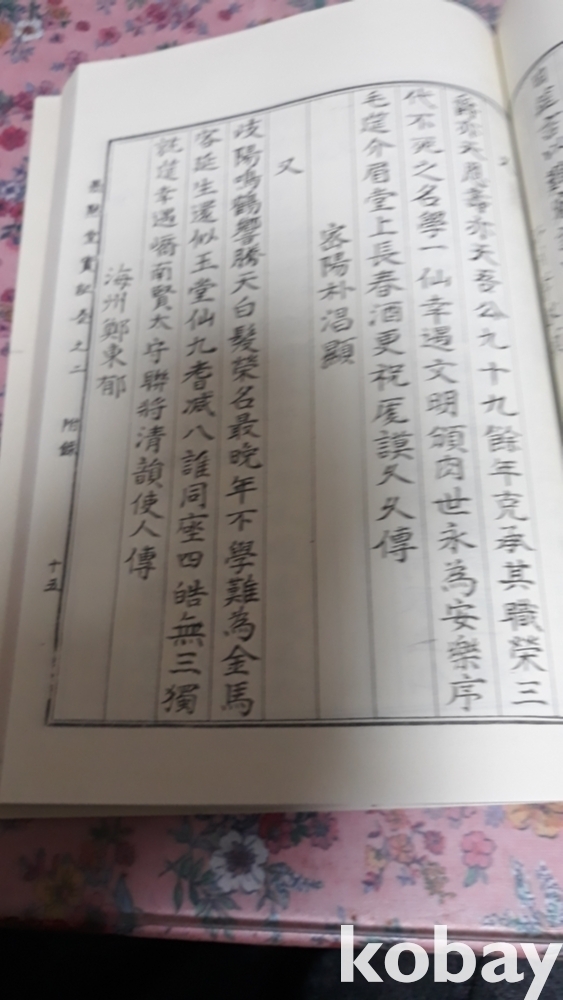 爵亦天應壽亦天吾公九十九餘年克承其職榮三
代不死之名學一仙幸遇文明頒肉世永為安樂序
毛筵介眉堂上長春酒更祝厖謨久久傳
密陽朴淐顯
又
岐陽鳴鶴響勝天白髮榮名最晚年不學難為金馬
客延生還似玉堂仙九耆减八誰同座四皓無三獨
詵筵幸遇嶠南賢太守聯將清韻使人傳
海州鄭東郁
堂實記卷之二 附錄 十五
kobay